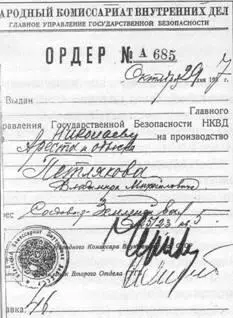 НАРОДНЫЙ КОМИССАРИАТ ВНУТРЕННИХ ДЕЛ
ГЛАВНОЕ УПРАВЛЕНИЕ ГОСУДАРСТВЕННОЙ БЕЗОПАСНОСТИ
ОРДЕР № А 685
Октября 29 дня 193 7
Выдан
Главного
Управления Государственной Безопасности НКВД
Николаеву на производство
Ареста и обыска
Петлякова
Владимира Михайловича
Садовая Земляной вал
5/23 5
Народного Комиссара
Второго Отдела
46